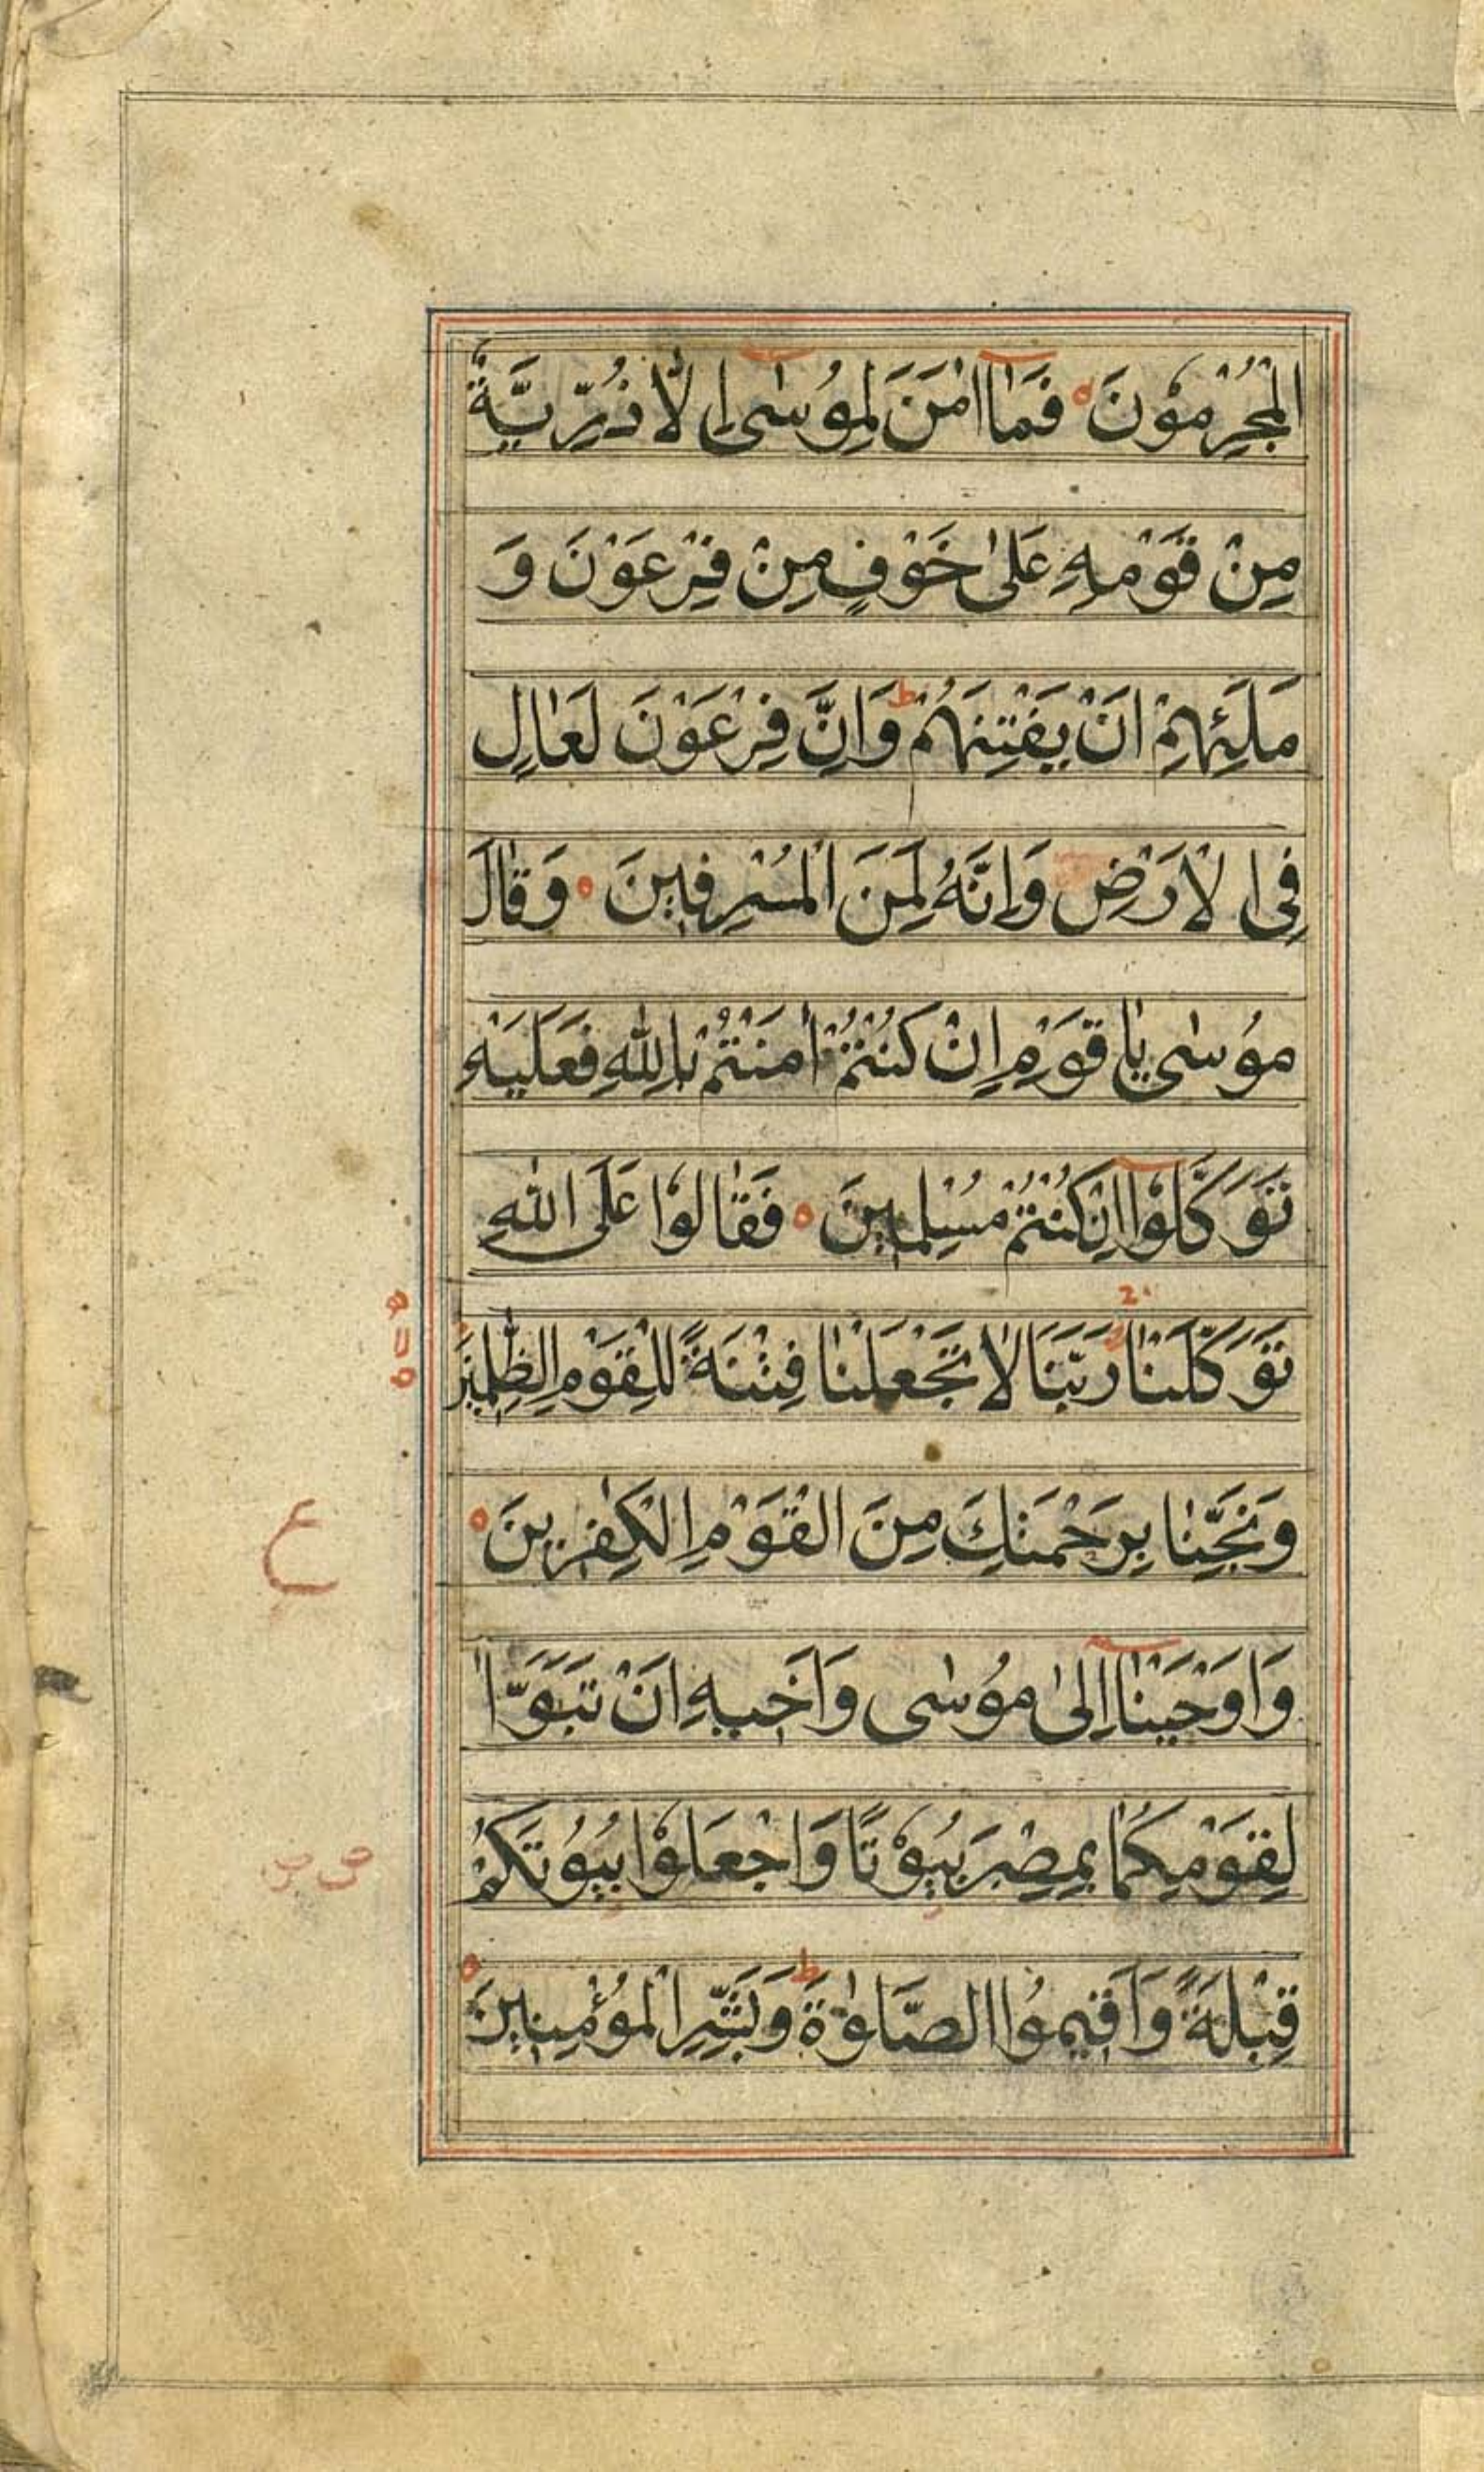 الْمُجْرِمُوْنَ فَمَا اٰمَنَ لِمُوْسٰى اِلَّا ذُرِّيَّةٌ
مِنْ قَوْمِهٖ عَلٰى خَوْفٍ مِنْ فِرْعَوْنَ وَ
مَلَئِهِمْ اَنْ يَفْتِنَهُمْ ط وَاِنَّ فِرْعَوْنَ لَعَالٍ
فِى الْاَرْضِ وَاِنَّهُ لَمِنَ الْمُسْرِفِينَ وَقَالَ
مُوْسٰى يَا قَوْمِ اِنْ كُنْتُمْ اٰمَنْتُمْ بِاللّٰهِ فَعَلَيْهِ
تَوَكَّلُوْا اِنْ كُنْتُمْ مُسْلِمِينَ فَقَالُوْا عَلَى اللّٰهِ
تَوَكَّلْنَا رَبَّنَا لَا تَجْعَلْنَا فِتْنَةً لِلْقَوْمِ الظّٰلِمِينَ
وَنَجِّنَا بِرَحْمَتِكَ مِنَ الْقَوْمِ الْكٰفِرِينَ
ع
وَاَوْحَيْنَا اِلٰى مُوْسٰى وَاَخِيهِ اَنْ تَبَوَّاٰ
لِقَوْمِكُمَا بِمِصْرَ بُيُوْتًا وَاجْعَلُوْا بُيُوْتَكُمْ
قِبْلَةً وَاَقِيمُوا الصَّلٰوةَ ط وَبَشِّرِ الْمُؤْمِنِينَ